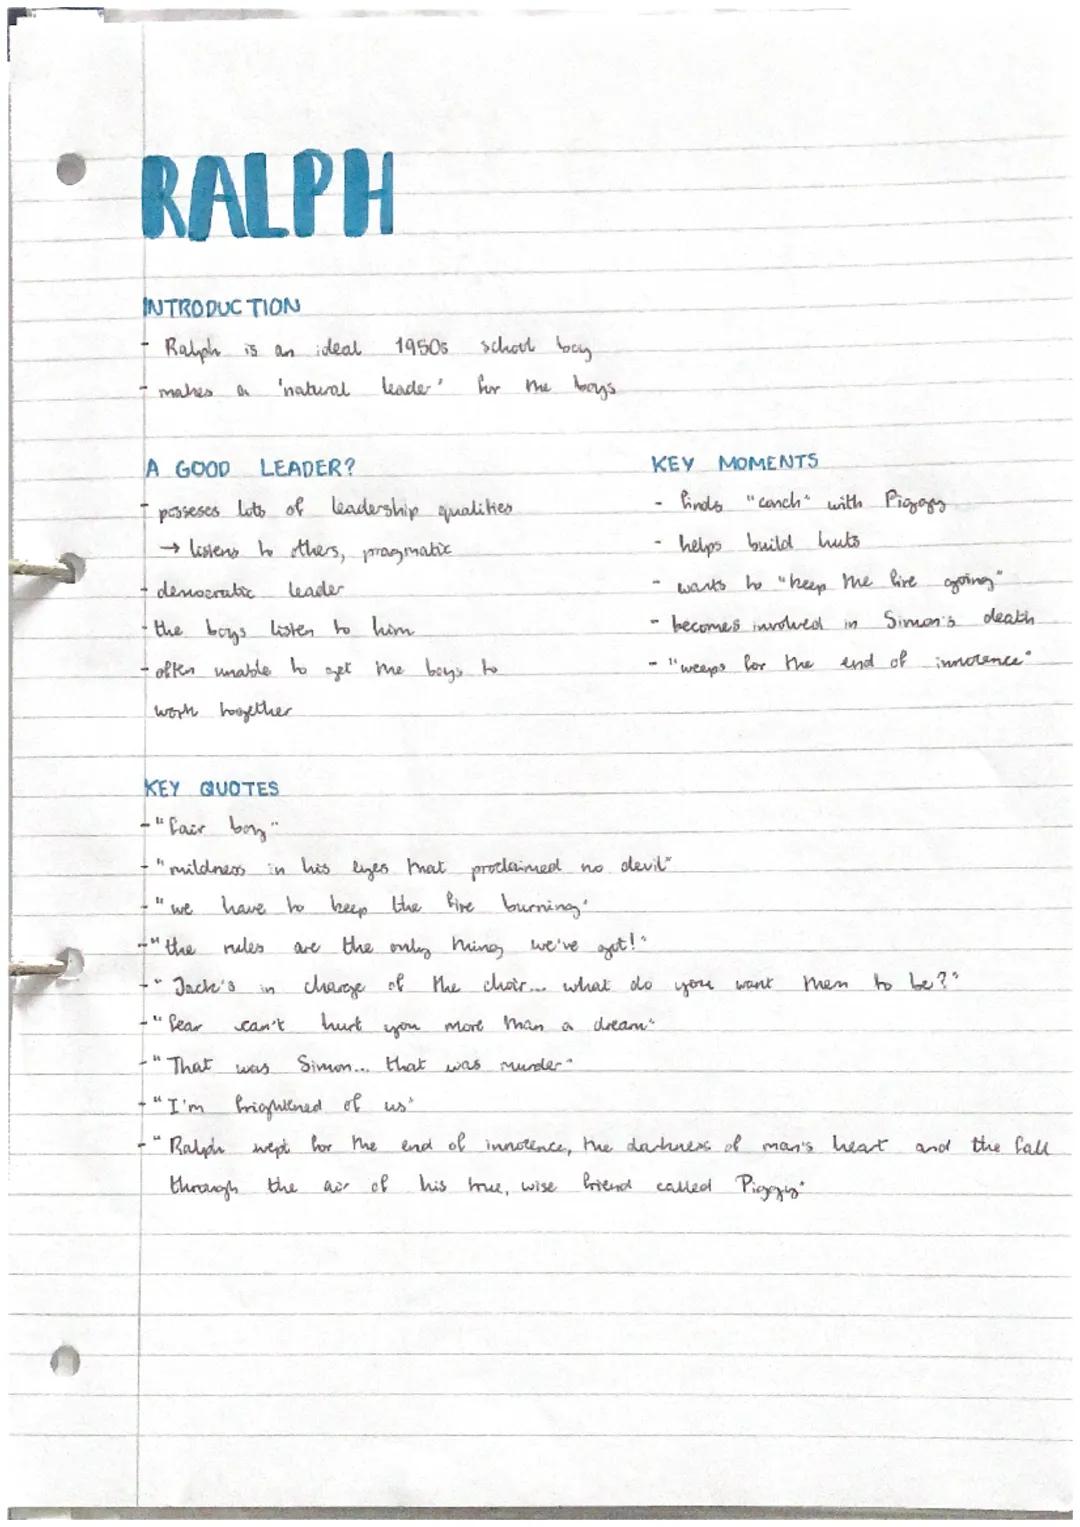 RALPH
INTRODUCTION
- Ralph is an ideal 1950s school boy
- makes a 'natural leader' for the boys
A GOOD LEADER?
- posseses lots of leadership qualities
→ listens to others, pragmatic
- democratic leader
- the boys listen to him
- often unable to get the boys to
work together
KEY MOMENTS
- finds "conch" with Piggy
- helps build huts
- wants to "keep the fire going"
- becomes involved in Simon's death
- "weeps for the end of innocence"
KEY QUOTES
- "fair boy"
- "mildness in his eyes that proclaimed no devil"
- "we have to keep the fire burning"
- "the rules are the only thing we've got!"
- "Jack's in charge of the choir... what do you want them to be?"
- "fear can't hurt you more than a dream"
- "That was Simon... that was murder"
- "I'm frightened of us"
- "Ralph wept for the end of innocence, the darkness of man's heart and the fall
through the air of his true, wise friend called Piggy"